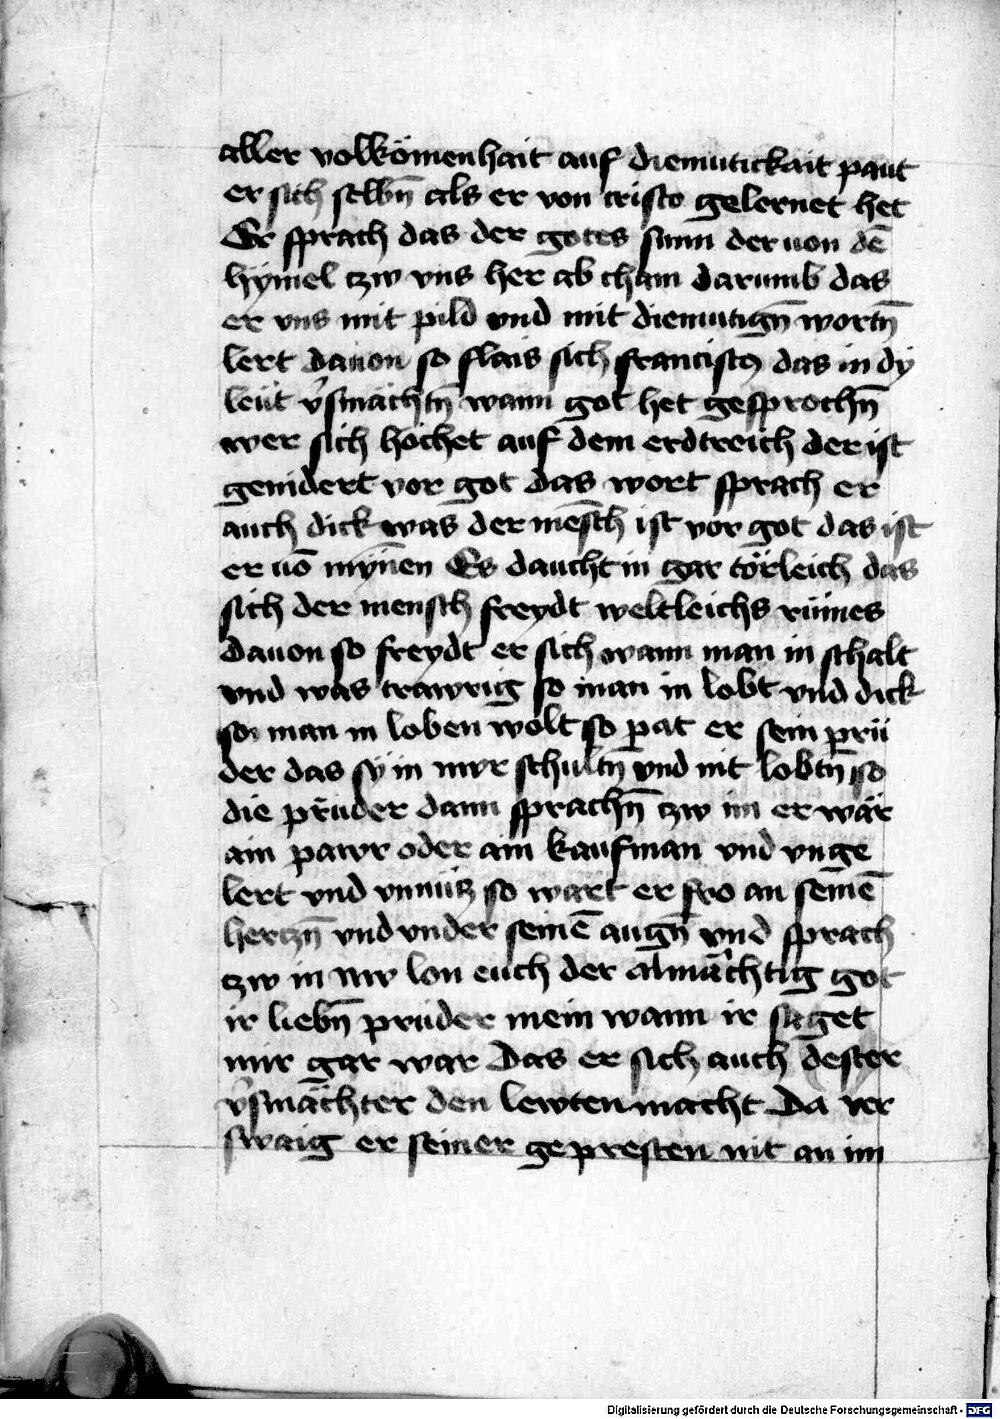 aller volkömenhait auf diemutickait paut
er sich selbn̄ als er von cristo gelernet het
Er sprach das der gotes sunn der uon dē
hymel tzw vns her ab cham darumb das
er vns mit pild vnd mit diemutign̄ wortn̄
lert dauon so flais sich franciscꝰ das in dy
leüt v̉smächtn̄ wann got het gesprochn̄
wer sich höchet auf dem erdtreich der ist
genidert vor got das wort sprach er
auch dick was der mēsch ist vor got das ist
er uō myn̄en Es daucht in gar törleich das
sich der mensch freydt weltleichs rümes
dauon so freydt er sich wann man in schalt
vnd was trawrig so man in lobt vnd dick
so man in loben wolt so pat er sein prü
der das sy in nvr schultn̄ vnd nit lobtn̄ so
die prüder dann sprachn̄ tzw im er wär
ain pawr oder ain kaufman vnd vnge
lert vnd vnnütz so wart er fro an seinē
hertzn̄ vnd vnder seinē augn̄ vnd sprach
tzw in nw lon euch der almächtig got
ir liebn̄ prüder mein wann ir saget
mir gar war Das er sich auch dester
v̉smächter den lewten macht Da ver
swaig er seiner gepresten nit an im
Digitalisierung gefördert durch die Deutsche Forschungsgemeinschaft - DFG